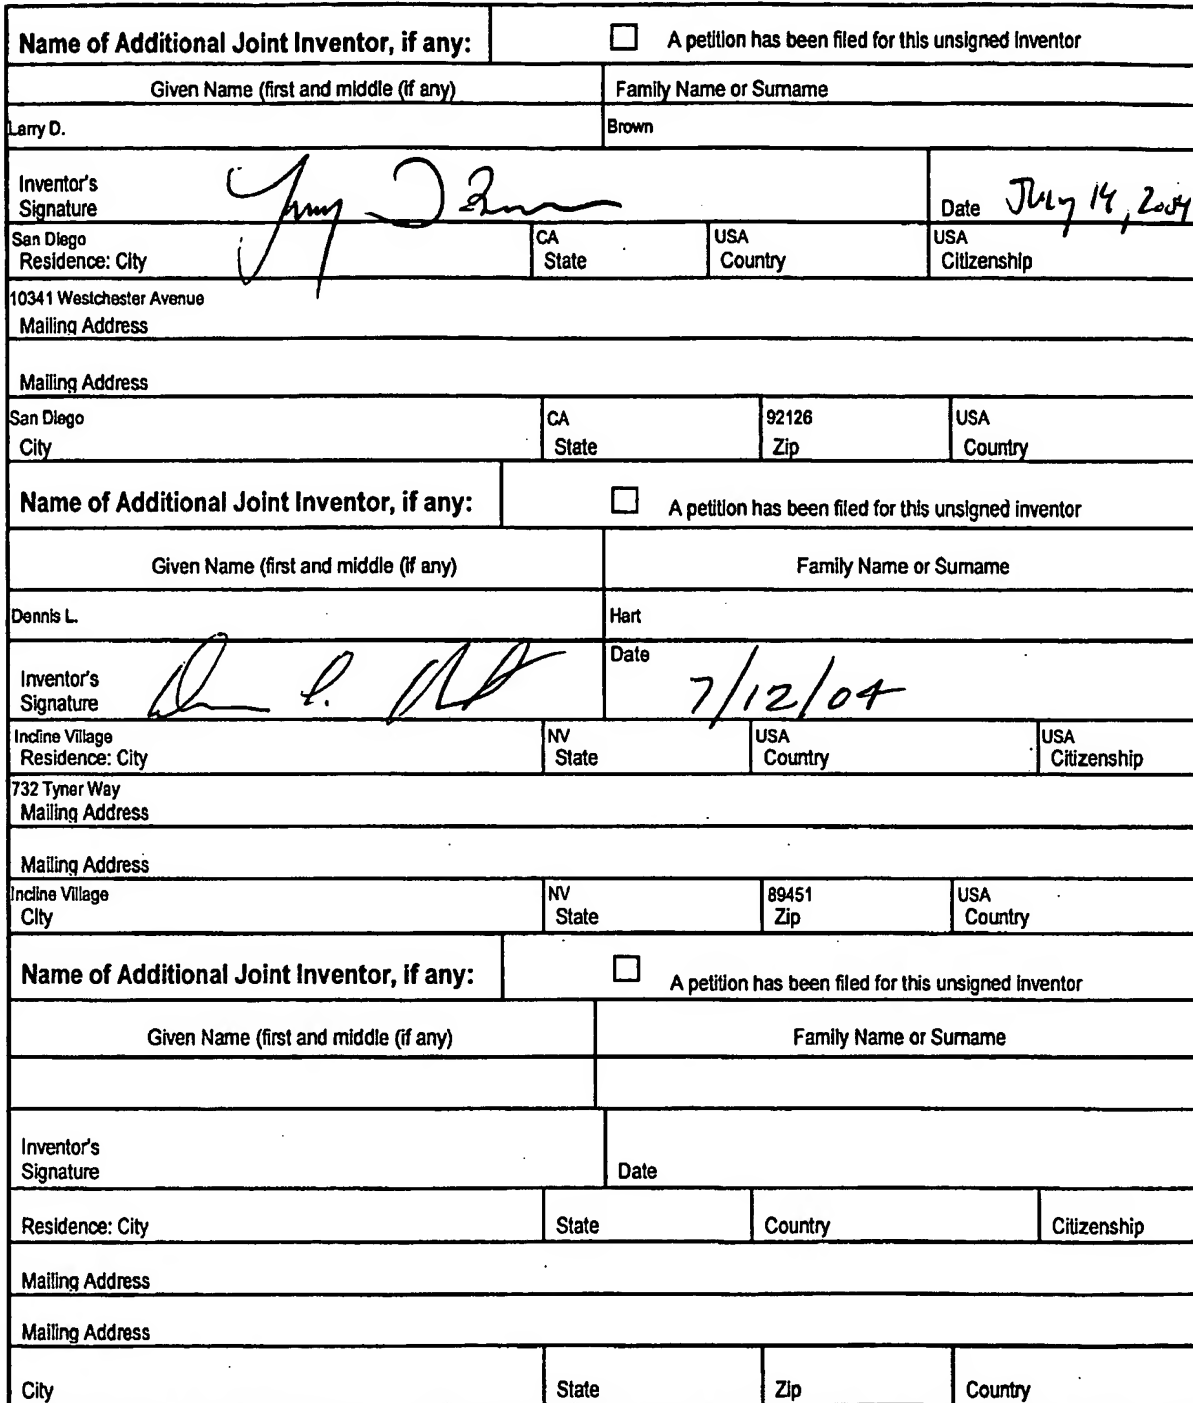 Name of Additional Joint Inventor, if any: A petition has been filed for this unsigned inventor
Given Name (first and middle (if any) Family Name or Surname
Larry D. Brown
Inventor's
Signature Date July 14, 2004
San Diego CA USA USA
Residence: City State Country Citizenship
10341 Westchester Avenue
Mailing Address
Mailing Address
San Diego CA 92126 USA
City State Zip Country
Name of Additional Joint Inventor, if any: A petition has been filed for this unsigned inventor
Given Name (first and middle (if any) Family Name or Surname
Dennis L. Hart
Inventor's Date
Signature 7/12/04
Incline Village NV USA USA
Residence: City State Country Citizenship
732 Tyner Way
Mailing Address
Mailing Address
Incline Village NV 89451 USA
City State Zip Country
Name of Additional Joint Inventor, if any: A petition has been filed for this unsigned inventor
Given Name (first and middle (if any) Family Name or Surname
Inventor's
Signature Date
Residence: City State Country Citizenship
Mailing Address
Mailing Address
City State Zip Country